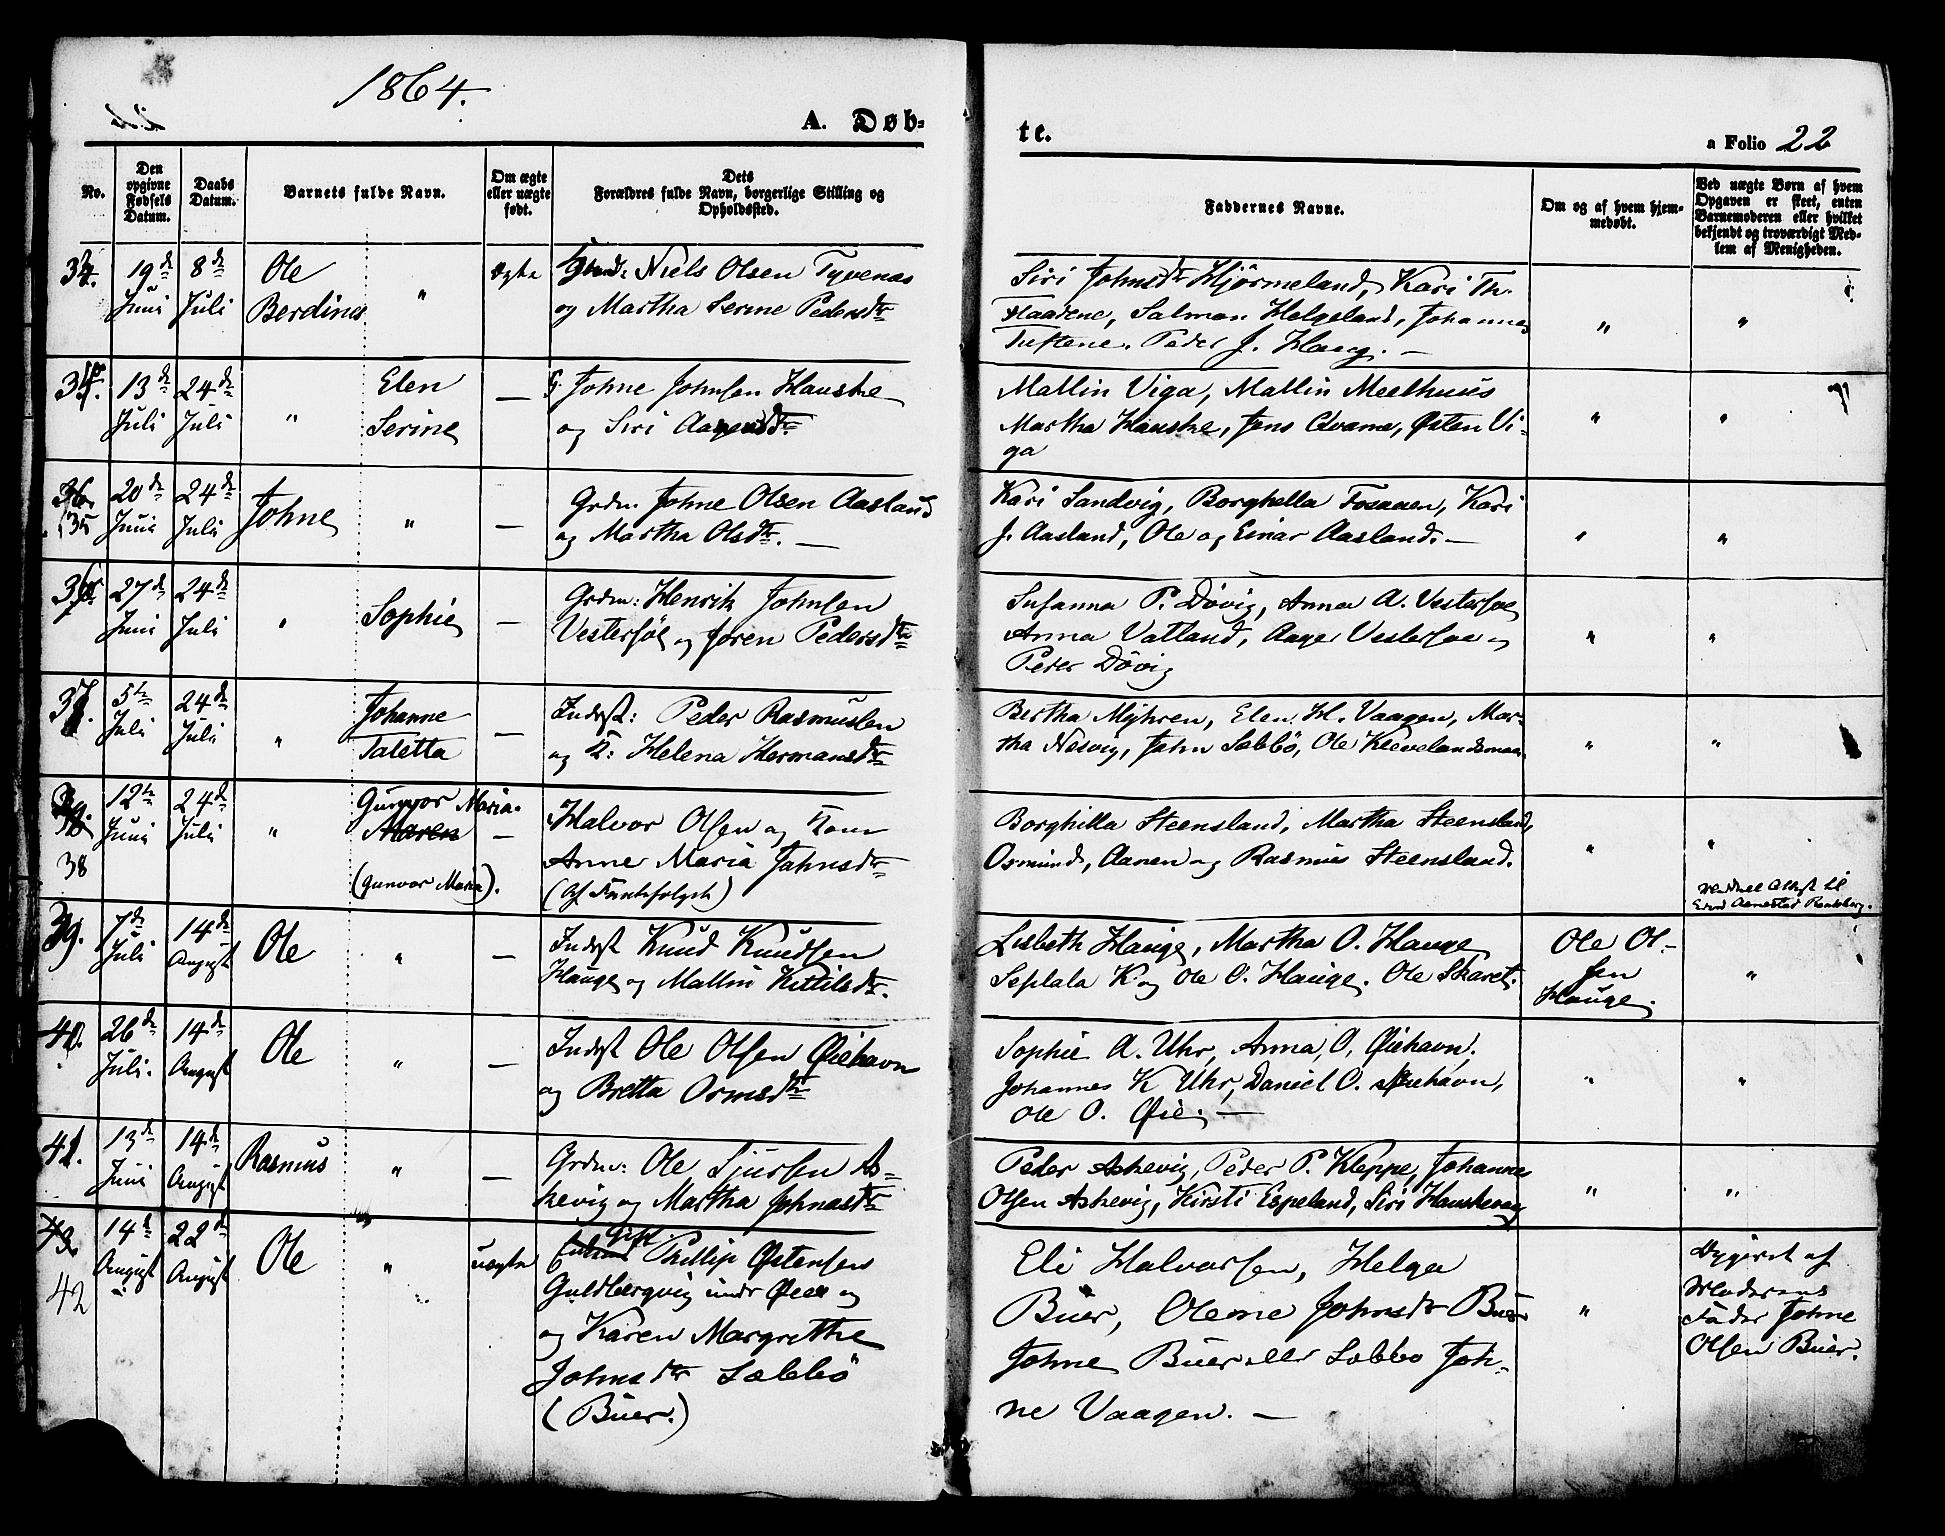 1864.
A. Døb-
te.
a Folio 22
No.
Den opgivne Fødsels Datum.
Daabs Datum.
Barnets fulde Navn.
Om ægte eller uægte født.
Dets
Forældres fulde Navn, borgerlige Stilling og
Opholdssted.
Faddernes Navne.
Om og af hvem hjem-
medøbt.
Ved uægte Børn af hvem
Opgaven er skeet, enten
Barnemoderen eller hvilket
bekjendt og troværdigt Med-
lem af Menigheden.
34. 19de Juni 8de Juli
Ole
Berdines "
ægte
Niels Olsen Tyvenas
og Martha Serine Pedersdtr
Siri Johnsdtr Hjørmeland, Kari Th.
Flaadene, Salmon Helgeland, Johannes
Tuftene. Peder J. Haug. —
" "
35. 13de Juli 24de Juli
" Elen
Serine
—
G. Johne Johnsen Hauske
og Siri Aanensdtr.
Mallin Viga, Mallin Meelhuus
Martha Hauske, Jens Qvame, Østen Vi-
ga
" "
36. 35 20de Juni 24de Juli
Johne "
—
Grdm. Johne Olsen Aasland
og Martha Olsdtr. —
Kari Sandvig, Borghella Fosaaen, Kari
J. Aasland, Ole og Einar Aasland. —
" "
36. 27de Juni 24de Juli
" Sophie
—
Grdm: Henrik Johnsen
Vestersøe og Joren Pedersdtr
Susanna P. Døvig, Anna A. Vestersoe
Anna Vatland, Aage Vestersoe og
Peder Døvig
" "
37. 5te Juli 24de Juli
" Johanne
Taletta
—
Inderst: Peder Rasmussen
og K: Helena Hermansdtr
Bertha Myhren, Elen H. Vaagen, Mar-
tha Nesvig, John Sæbbö, Ole Klevelandsmoen
" "
38 12te Juni 24de Juli
" Gunvor Maria.
Maren
(Gunvor Maria).
—
Halvor Olsen og Kone
Anne Maria Johnsdtr
(Af Fantefølget)
Borghilla Steensland, Martha Steensland,
Osmund, Aanen og Rasmus Steensland.
" "
39. 7de Juli 14de August
Ole "
—
Inderst Knud Knudsen
Hauge og Mallin Kittilsdtr.
Lisbeth Hauge, Martha O. Hauge
K og Ole O. Hauge. Ole Skaret.
Ole Ol-
sen
Hauge.
"
40. 26de Juli. 14de August
Ole "
—
Inderst Ole Olsen Øiehavn
og Bretta Ormsdtr
Sophie A. Uhr, Anna O. Øiehavn,
Johannes K Uhr, Daniel O. Øiehavn,
Ole O. Øie. —
" "
41. 13de Juni 14de August
Rasmus "
—
Grdm: Ole Sjursen As-
kevig og Martha Johnasdtr
Peder Askevig, Peder P. Kleppe, Johannes
Olsen Askevig, Kirsti Espeland, Siri Hauskevaag
" "
43. 42 14de August 22de August
Ole "
uægte
Gift
Phillip Østensen
Guldbergvig under Øiee og
og Karen Margrethe
Johnsdtr Sæbbö
(Buer.)
Eli Halvorsen, Helga
Buer, Olene Johnsdtr Buer
Johne Buer eller Sæbbo Joh-
ne Vaagen. —
"
Opgivet af
Moderens
Fader Johne
Olsen Buer.